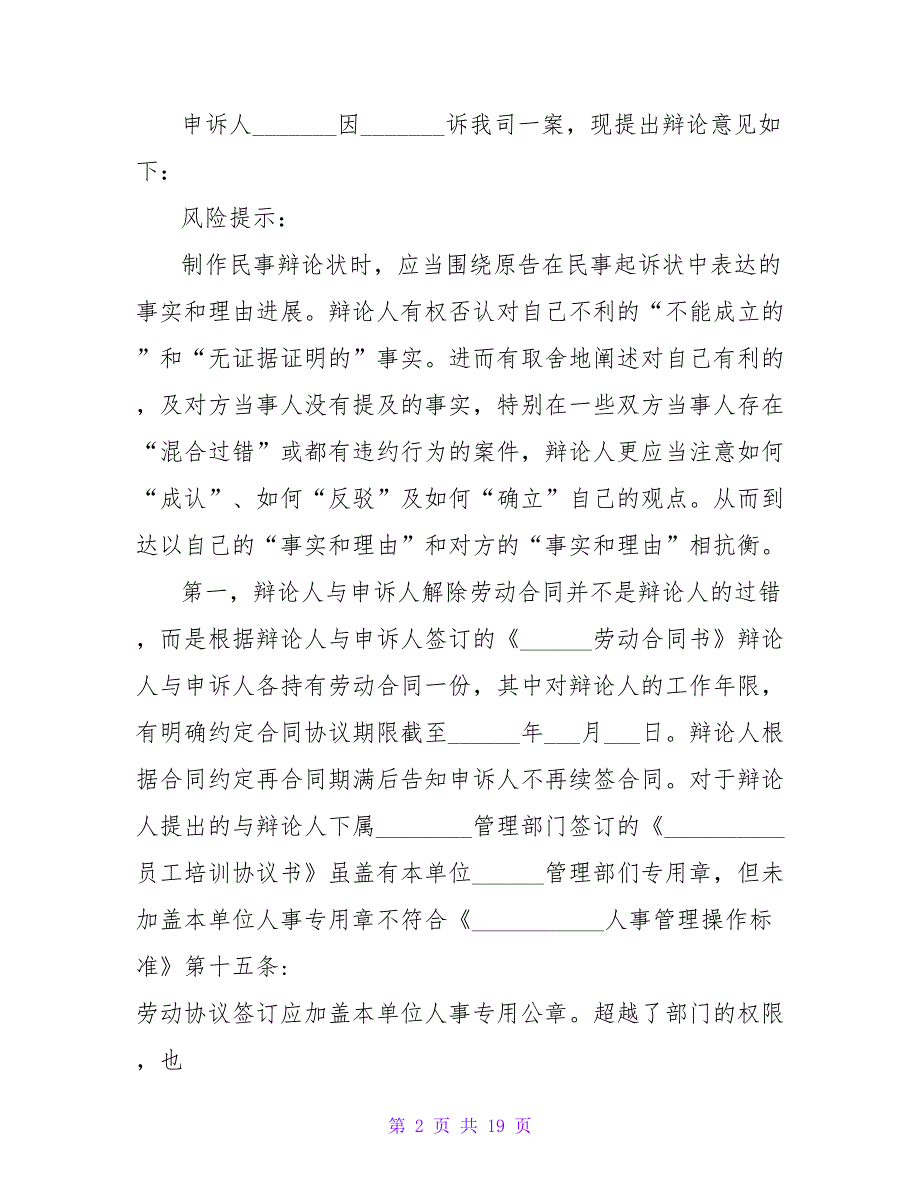 申诉人_______因_______诉我司一案，现提出辩论意见如
下：
风险提示：
制作民事辩论状时，应当围绕原告在民事起诉状中表达的
事实和理由进展。辩论人有权否认对自己不利的“不能成立的
”和“无证据证明的”事实。进而有取舍地阐述对自己有利的
，及对方当事人没有提及的事实，特别在一些双方当事人存在
“混合过错”或都有违约行为的案件，辩论人更应当注意如何
“成认”、如何“反驳”及如何“确立”自己的观点。从而到
达以自己的“事实和理由”和对方的“事实和理由”相抗衡。
第一，辩论人与申诉人解除劳动合同并不是辩论人的过错
，而是根据辩论人与申诉人签订的《______劳动合同书》辩论
人与申诉人各持有劳动合同一份，其中对辩论人的工作年限，
有明确约定合同协议期限截至______年___月___日。辩论人根
据合同约定再合同期满后告知申诉人不再续签合同。对于辩论
人提出的与辩论人下属________管理部门签订的《__________
员工培训协议书》虽盖有本单位______管理部们专用章，但未
加盖本单位人事专用章不符合《___________人事管理操作标
准》第十五条:
劳动协议签订应加盖本单位人事专用公章。超越了部门的权限
，也
第 2 页 共 19 页